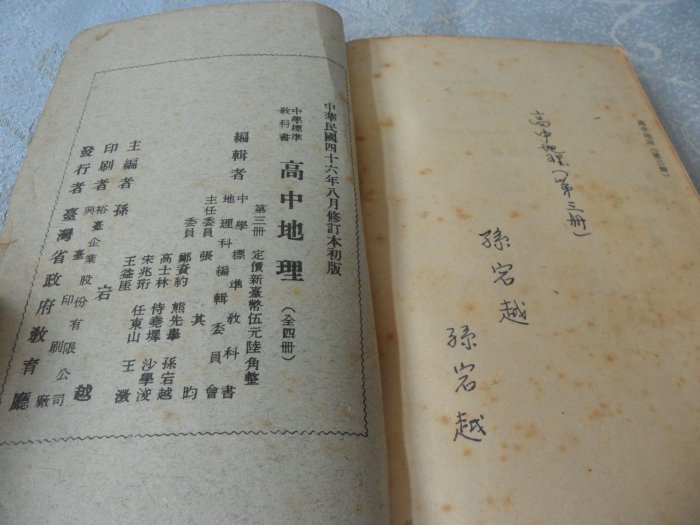 中華民國四十六年八月修訂本初版
中學標準
教科書
高中地理
(全四冊)
第三冊 定價新臺幣伍元陸角整
編輯者
中學標準教科書
地理科編輯委員會
主任委員 張其昀
委員
鄭資約 熊先舉 孫宕越
高士林 侍堯墀 沙學浚
宋兆珩 任東山 王激
王益厓
主編者 孫宕越
印刷者
裕臺企業股份有限公司
興臺印刷廠
發行者 臺灣省政府教育廳
高中地理(第三冊)
高中地理(第三冊)
孫宕越
孫宕越